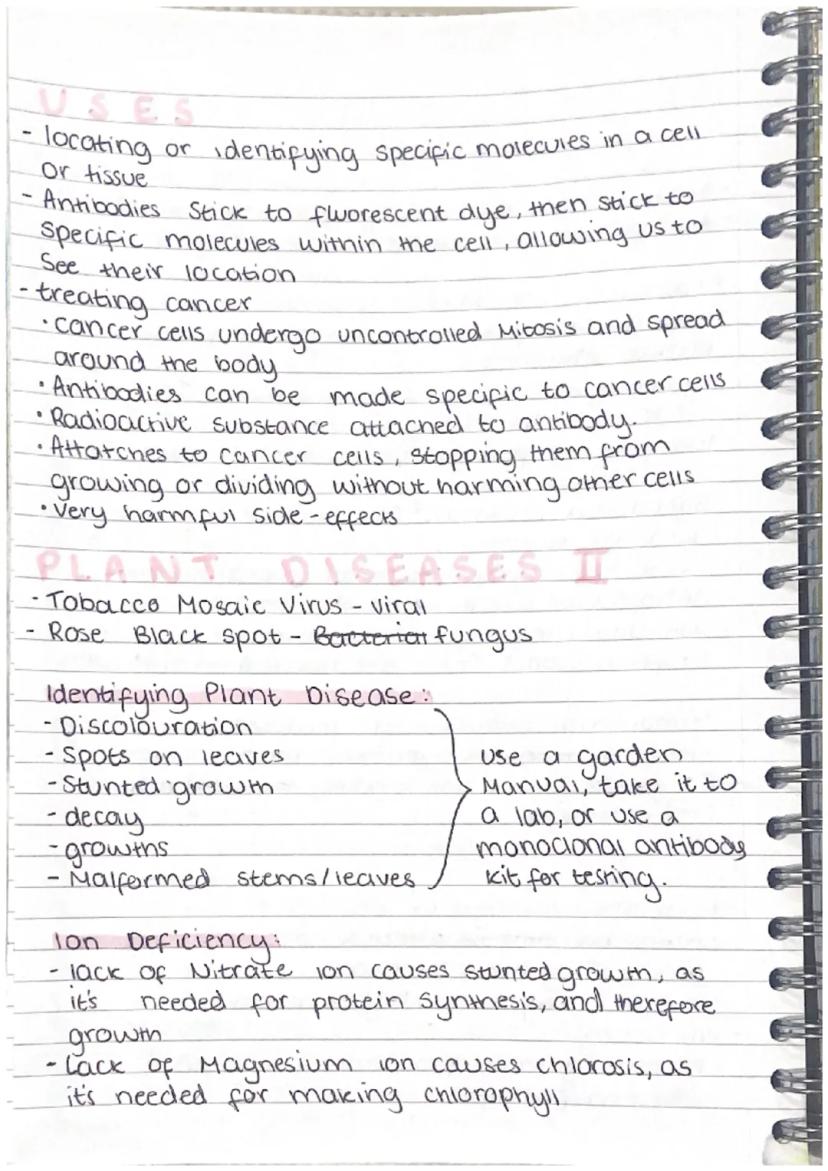 USES
- locating or identifying specific molecules in a cell
or tissue
- Antibodies stick to fluorescent dye, then stick to
specific molecules within the cell, allowing us to
see their location
- treating cancer
• cancer cells undergo uncontrolled Mitosis and spread
around the body
• Antibodies can be made specific to cancer cells
• Radioactive substance attached to antibody.
• Attatches to cancer cells, stopping them from
growing or dividing without harming other cells
• Very harmful side-effects
PLANT DISEASES II
- Tobacco Mosaic Virus - viral
- Rose Black spot - Bacterial fungus
Identifying Plant Disease:
- Discolouration
- Spots on leaves
- Stunted growth
- decay
- growths
- Malformed stems/leaves
use a garden
Manual, take it to
a lab, or use a
monoclonal antibody
kit for testing.
Ion Deficiency:
- lack of Nitrate ion causes stunted growth, as
it's needed for protein synthesis, and therefore
growth
- Lack of Magnesium ion causes chlorosis, as
it's needed for making chlorophyll